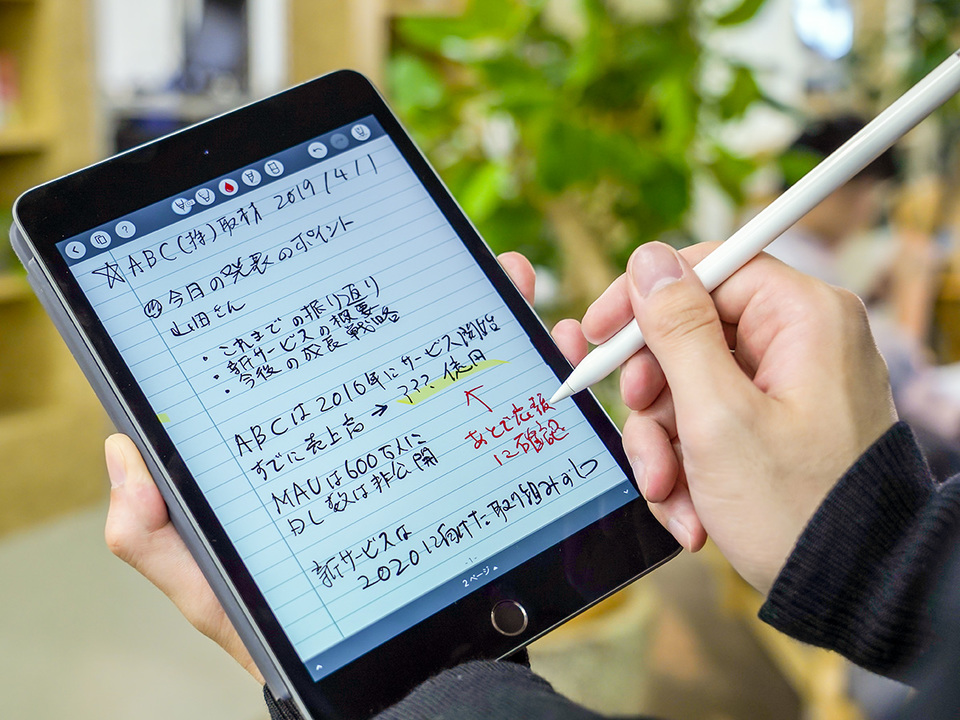 ☆ABC(株)取材 2019/4/1
今日の発表のポイント
山田さん
・これまでの振り返り
・新サービスの概要
・今後の成長戦略
ABCは2016年にサービス開始
すでに売上高→???億円
あとで広報
に確認
MAUは600万人に
DL数は非公開
新サービスは
2020に向けた取り組み
2ページ